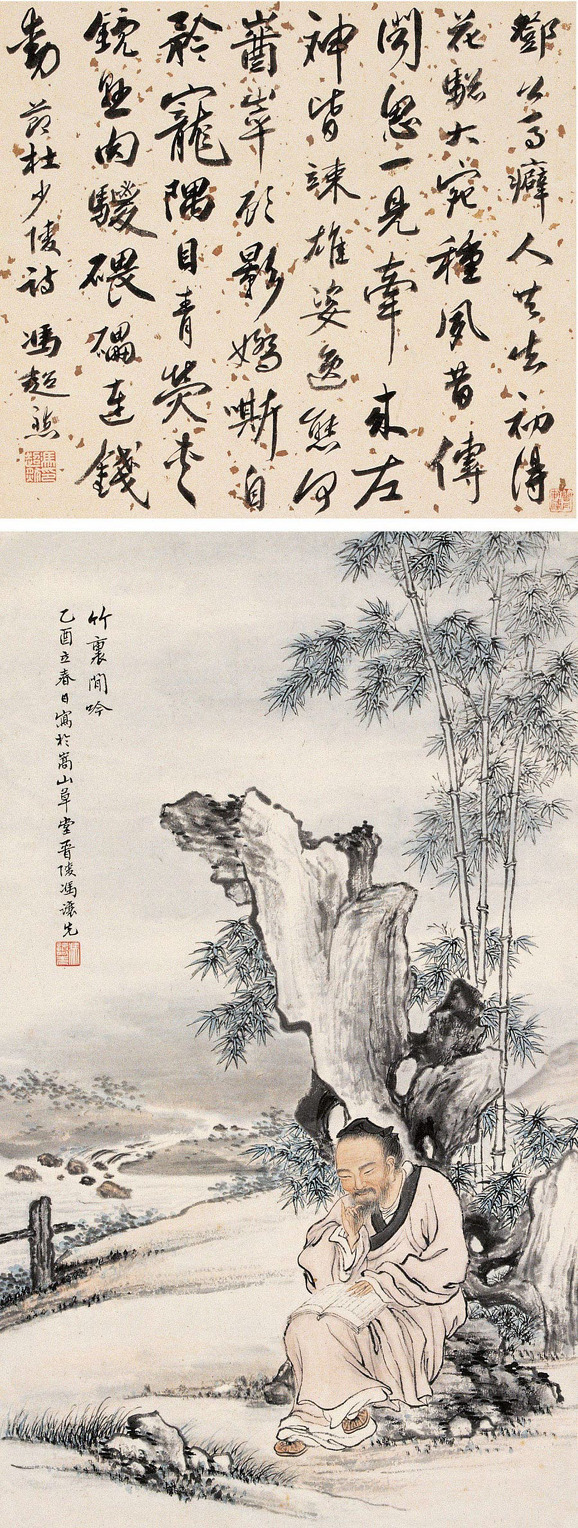 鄧公馬癖人共知初得
花驄大宛種夙昔傳
聞思一見牽來左
神皆竦雄姿逸態何
崷崒顧影嬌嘶自
矜寵隅目青熒夾
鏡懸肉騣碨礧連錢
動 節杜少陵詩 馮超然
竹裏閒吟
乙酉立春日寫於嵩山草堂晉陵馮讓先